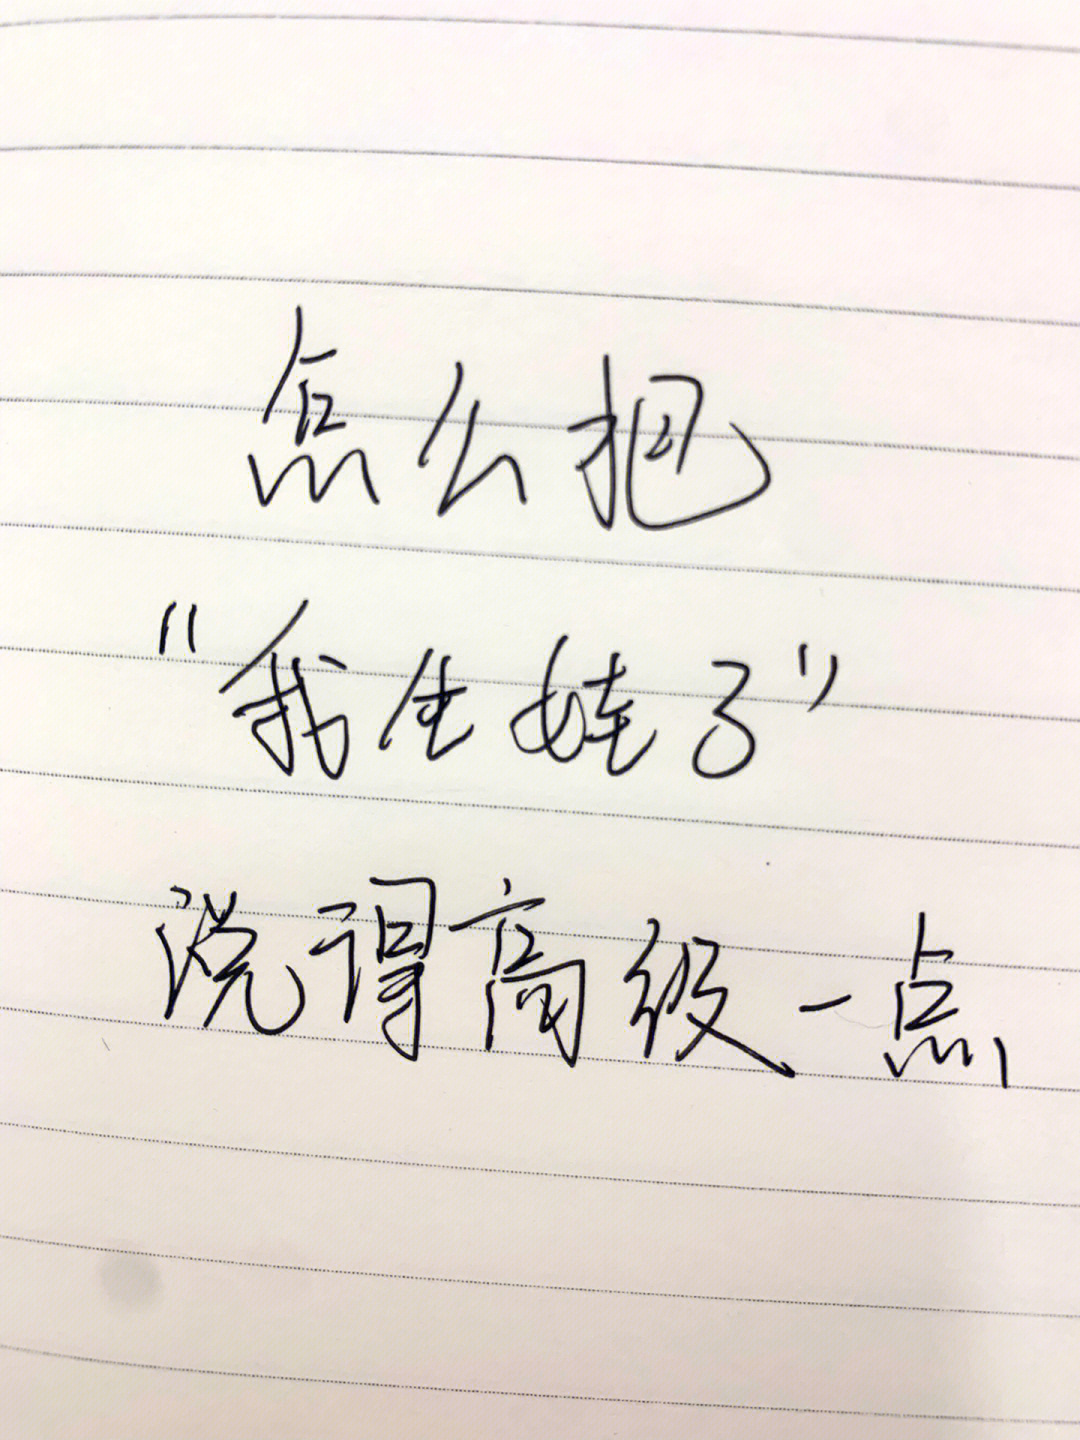 怎么把
“我生娃了”
说得高级一点